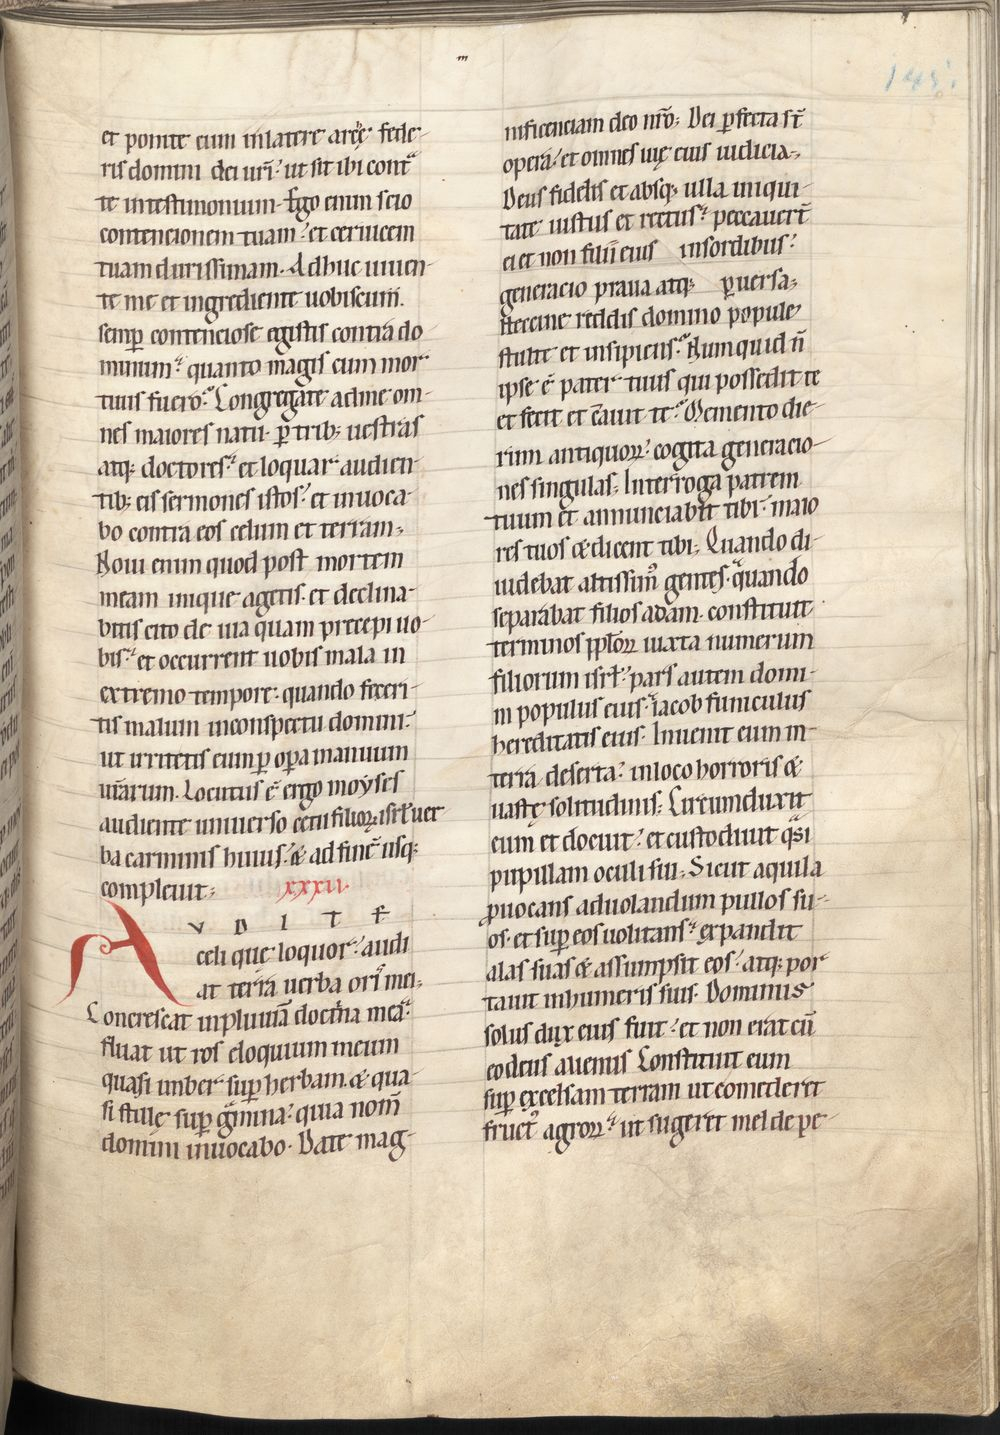 m
145
et ponite eum in latere arcę fede-
ris domini dei ur̄i ut sit ibi cont̄
te in testimonium. Ego enim scio
contencionem tuam. et ceruicem
tuam durissimam. Adhuc uiuen-
te me et ingrediente uobiscum.
semꝑ contenciose egistis contra do
minum. quanto magis cum mor
tuus fuero. Congregate ad me om-
nes maiores natu ꝑ trib; uestras
atq; doctores. et loquar audien-
tib; eis sermones istos. et inuoca-
bo contra eos celum et terram.
Noui enim quod post mortem
meam inique agetis. et declina-
bitis cito de uia quam precepi uo-
bis. et occurrent uobis mala in
extremo tempore. quando feceri-
tis malum in conspectu domini.
ut irritetis eum ꝑ oꝑa manuum
ur̄arum. Locutus ē ergo moyses
audiente uniuerso cetu filioꝝ isrl̄ uer
ba carminis huius. & ad finē usq;
compleuit. xxxii.
AVDITE
celi que loquor. audi
at terra uerba oris mei.
Concrescat in pluuiā doctrina mea.
fluat ut ros eloquium meum
quasi imber suꝑ herbam. & qua-
si stillę suꝑ gͣmina. quia nom̄
domini inuocabo. Date mag-
nificenciam deo nr̄o. Dei ꝑfecta st̄
opera. et omnes uię eius iudicia.
Deus fidelis et absq; ulla iniqui-
tate iustus et rectus. peccauer̄t
ei et non filii eius in sordibus.
generacio praua atq; ꝑuersa.
Heccine reddis domino popule
stulte et insipiens. Numquid n̄
ipse ē pater tuus qui possedit te
et fecit et c̄auit te. Memento die-
rum antiquoꝝ. cogita generacio-
nes singulas. Interroga patrem
tuum et annunciabit tibi. maio
res tuos & dicent tibi. Quando di-
uidebat altissim᾽ gentes. qͣndo
separabat filios adam. constituit
terminos pplo̅ꝝ iuxta numerum
filiorum isrl̄. pars autem domi-
ni populus eius. iacob funiculus
hereditatis eius. Inuenit eum in
terra deserta. in loco horroris &
uastę solitudinis. Circumduxit
eum et docuit. et custodiuit qͣsi
pupillam oculi sui. Sicut aquila
ꝓuocans ad uolandum pullos su-
os. et suꝑ eos uolitans. expandit
alas suas & assumpsit eos. atq; por
tauit in humeris suis. Dominus
solus dux eius fuit. et non erat cū
eo deus alienus Constituit eum
suꝑ excelsam terram ut comederet
fruct᾽ agroꝝ. ut sugeret mel de pe-